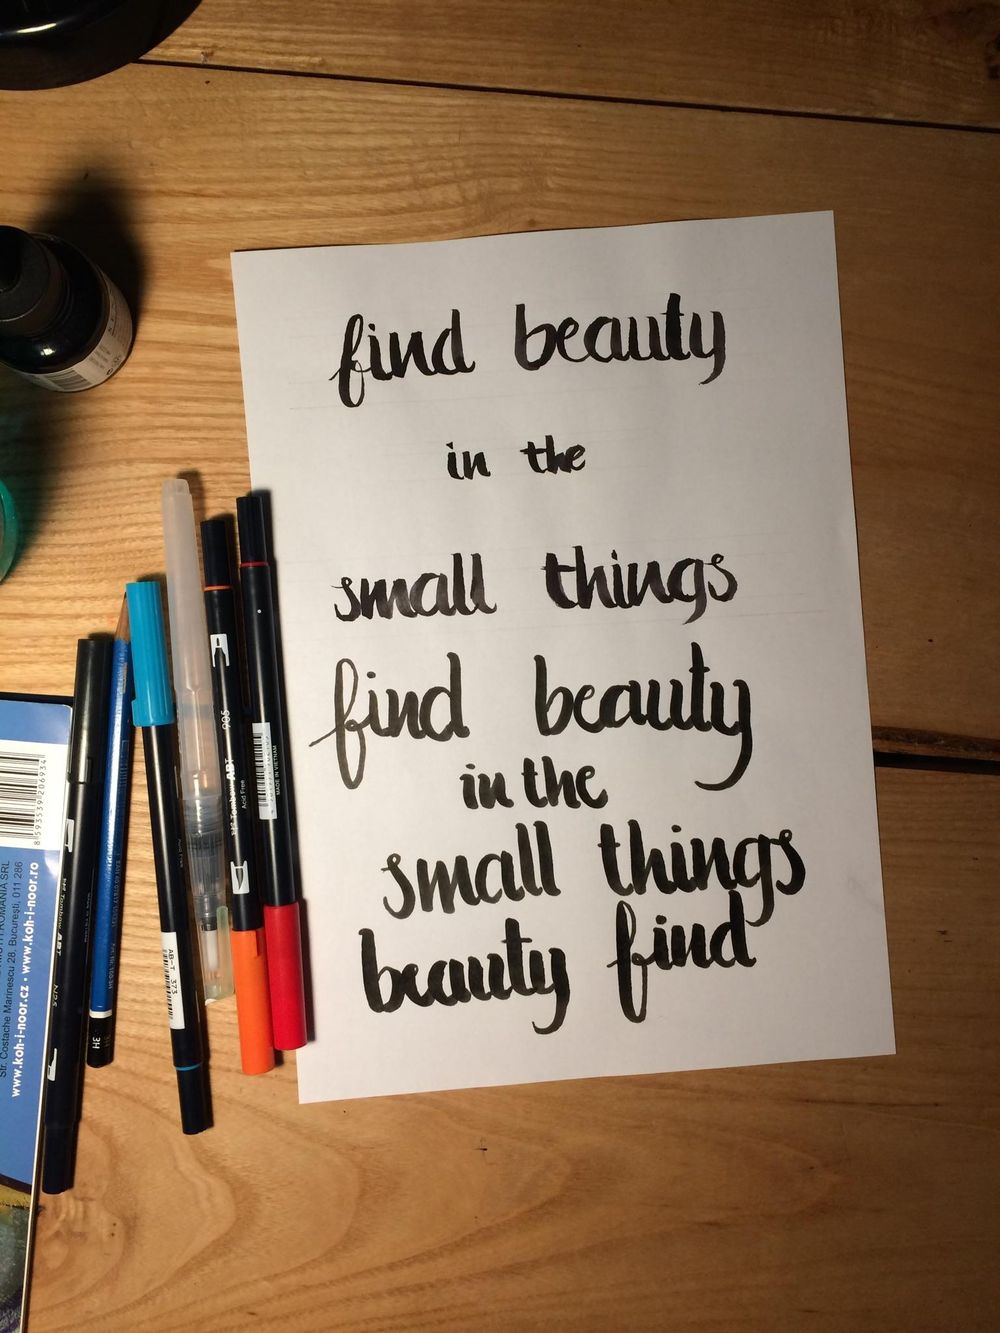 find beauty
in the
small things
find beauty
in the
small things
beauty find
905
Tombow ABT
Acid Free
MADE IN VIETNAM
AB-T 373
3H
N25
8 593539 206934
ROMANIA SRL
Str. Costache Marinescu 28, Bucureşti, 011 286
www.koh-i-noor.cz • www.koh-i-noor.ro